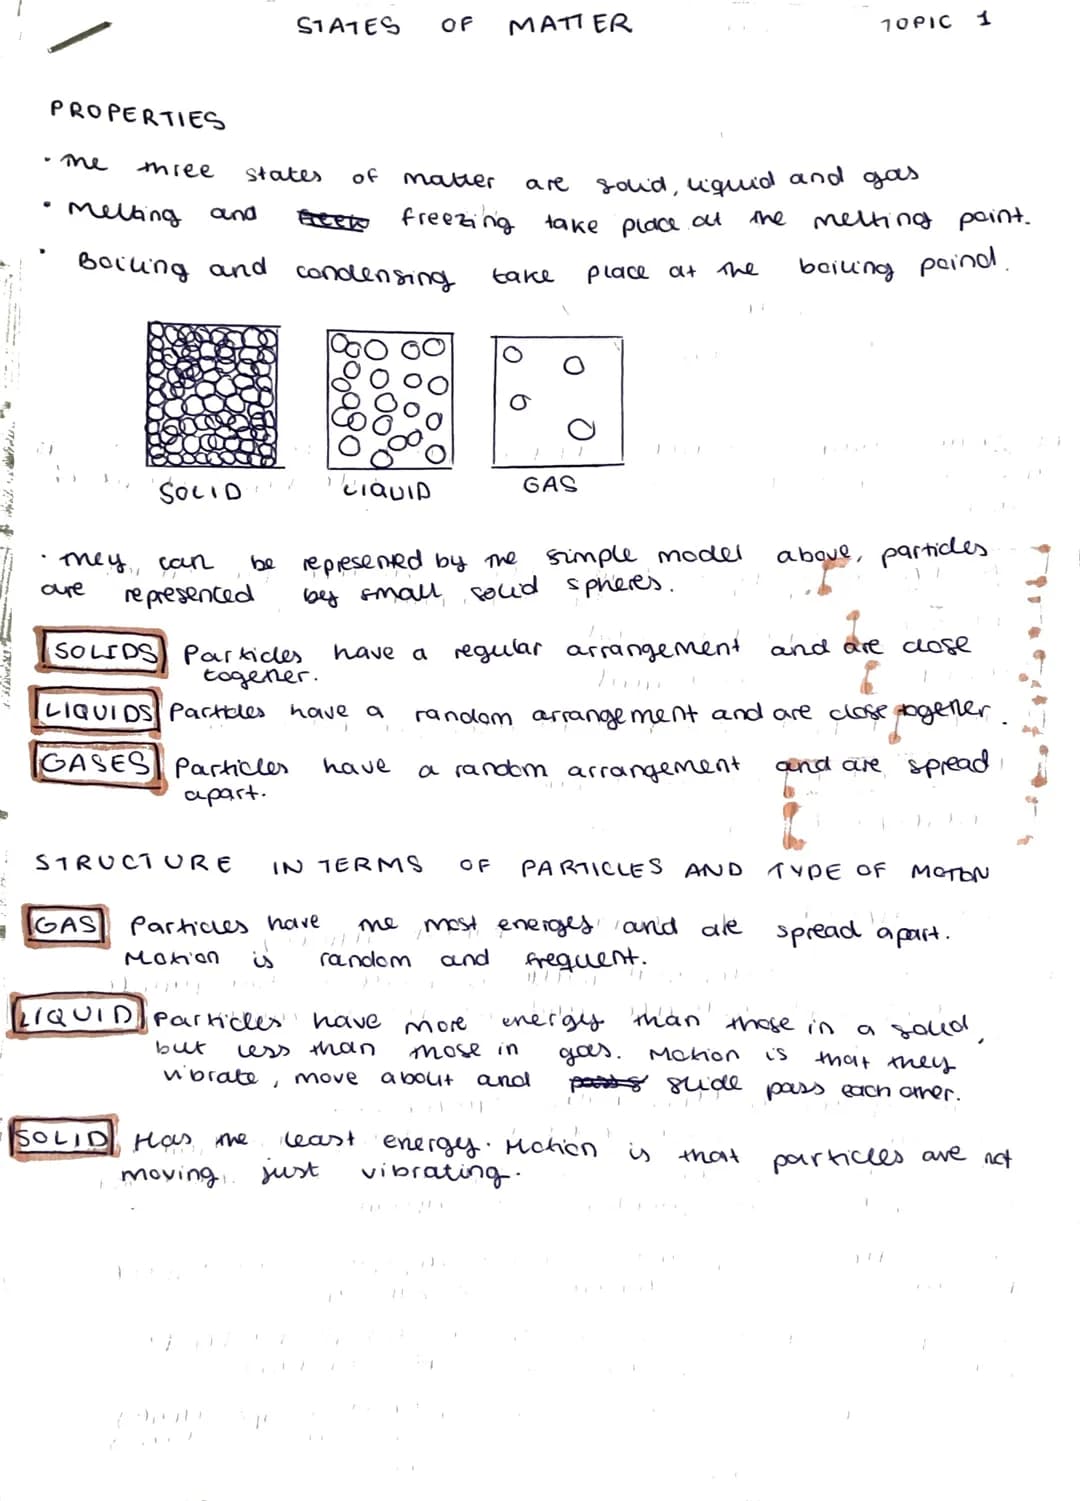 STATES OF MATTER TOPIC 1
PROPERTIES
· The three states of matter are solid, liquid and gas
· Melting and freezing take place at the melting point.
· Boiling and condensing take place at the boiling point.
SOLID LIQUID GAS
· They can be represented by the simple model above, particles
are represented by small solid spheres.
SOLIDS Particles have a regular arrangement and are close
together.
LIQUIDS Particles have a random arrangement and are close together.
GASES Particles have a random arrangement and are spread
apart.
STRUCTURE IN TERMS OF PARTICLES AND TYPE OF MOTION
GAS Particles have the most energy and are spread apart.
Motion is random and frequent.
LIQUID Particles have more energy than those in a solid,
but less than those in gas. Motion is that they
vibrate, move about and slide pass each other.
SOLID Has the least energy. Motion is that particles are not
moving, just vibrating.